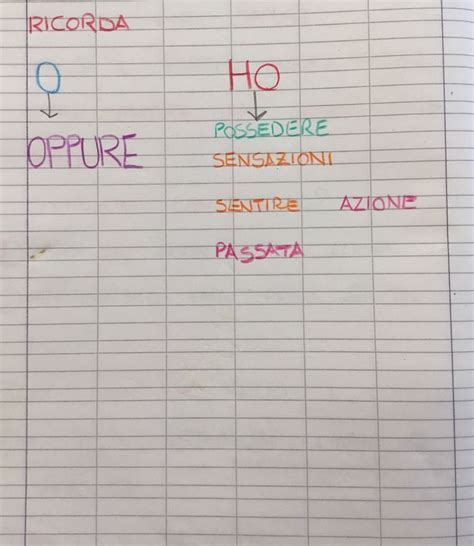 RICORDA
O HO
OPPURE
POSSEDERE
SENSAZIONI
SENTIRE AZIONE
PASSATA